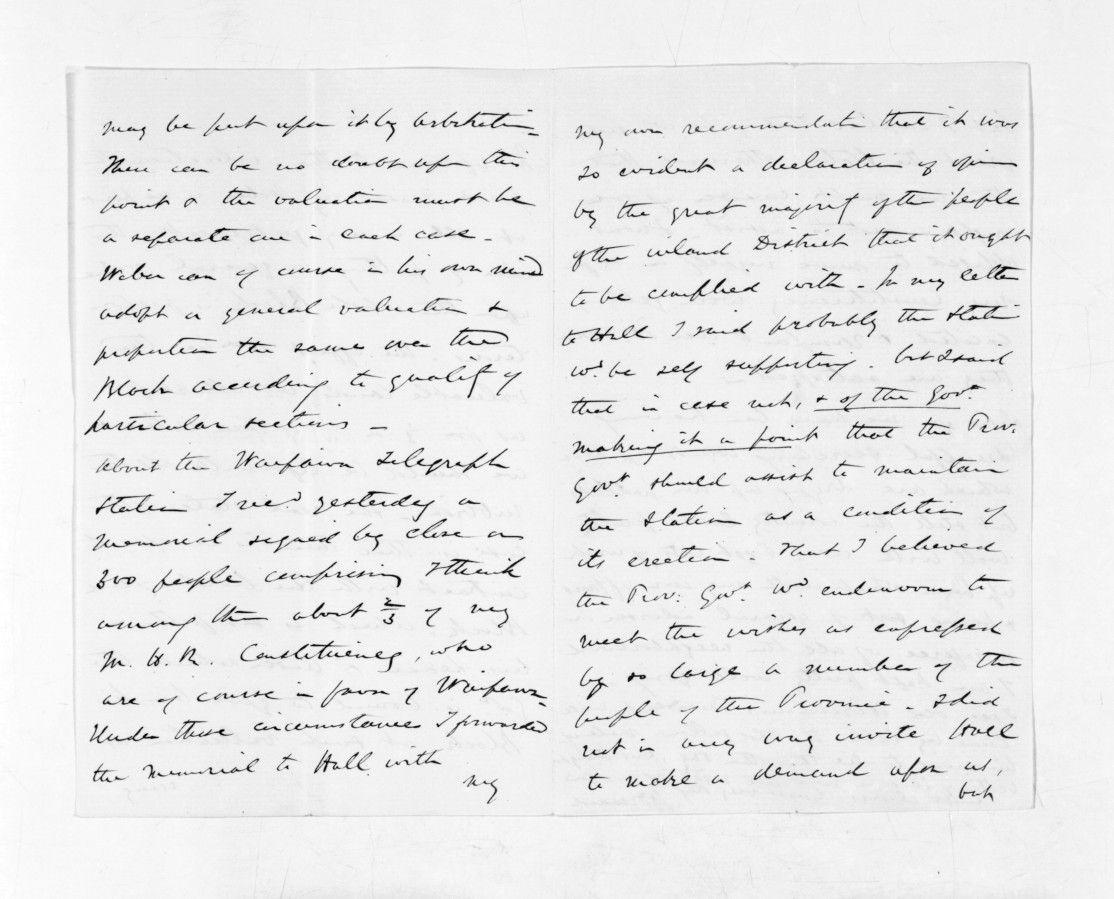 may be put upon it by Arbitration –
There can be no doubt upon this
point & the valuation must be
a separate one in each case –
Weber can of course in his own mind
adopt a general valuation &
proportion the same over the
Block according to quality of
particular sections –
About the Waipawa Telegraph
Station I recd. yesterday a
memorial signed by close on
300 people comprising I think
among them about 2/3 of my
M.H.R. Constituency, who
are of course in favor of Waipawa –
Under these circumstances I forwarded
the memorial to Hall with
my
my own recommendation that it was
so evident a declaration of opinion
by the great majority of the people
of the inland District that it ought
to be complied with – In my letter
to Hall I said probably the station
wd. be self supporting. but I said
that in case not, & of the Govt.
making it a point that the Prov:
Govt should assist to maintain
the station as a condition of
its erection – that I believed
the Prov: Govt. wd. endeavour to
meet the wishes as expressed
by so large a number of the
people of the Province – I did
not in any way invite Hall
to make a demand upon us,
but